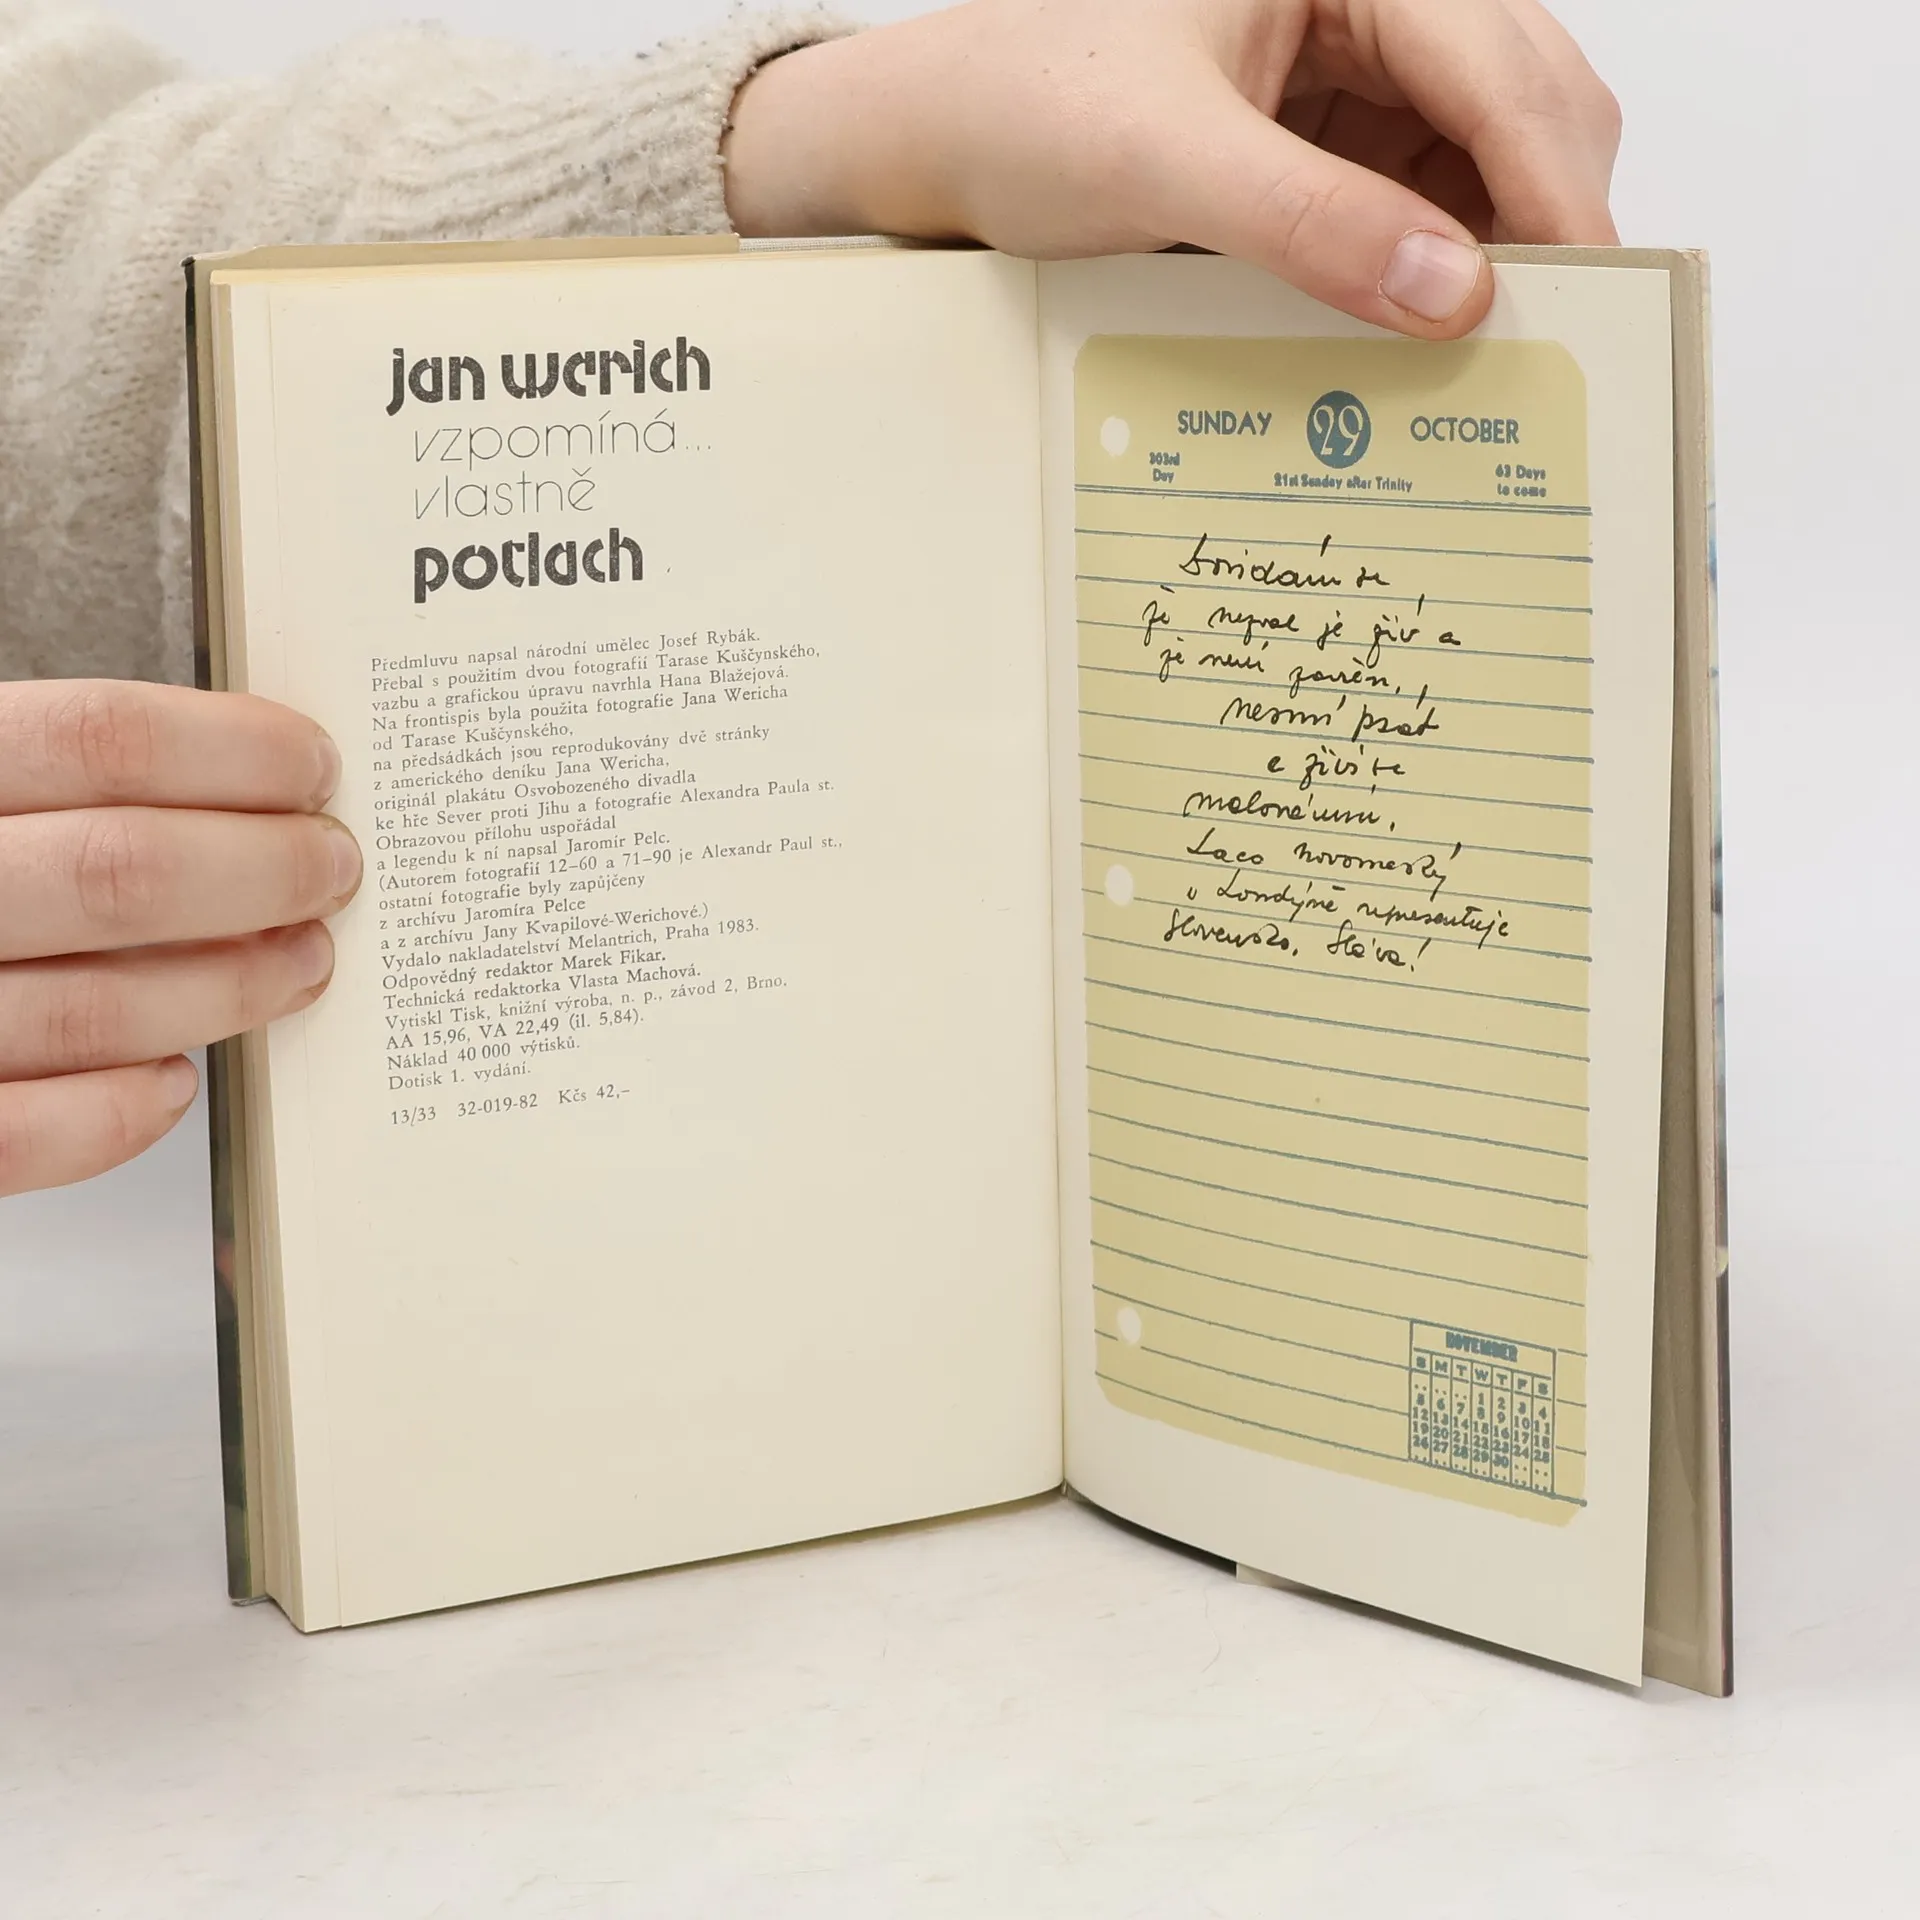 jan werich
vzpomíná...
vlastně
potlach
Předmluvu napsal národní umělec Josef Rybák.
Přebal s použitím dvou fotografií Tarase Kuščynského,
vazbu a grafickou úpravu navrhla Hana Blažejová.
Na frontispis byla použita fotografie Jana Wericha
od Tarase Kuščynského,
na předsádkách jsou reprodukovány dvě stránky
z amerického deníku Jana Wericha,
originál plakátu Osvobozeného divadla
ke hře Sever proti Jihu a fotografie Alexandra Paula st.
Obrazovou přílohu uspořádal
a legendu k ní napsal Jaromír Pelc.
(Autorem fotografií 12–60 a 71–90 je Alexandr Paul st.,
ostatní fotografie byly zapůjčeny
z archívu Jaromíra Pelce
a z archívu Jany Kvapilové-Werichové.)
Vydalo nakladatelství Melantrich, Praha 1983.
Odpovědný redaktor Marek Fikar.
Technická redaktorka Vlasta Machová.
Vytiskl Tisk, knižní výroba, n. p., závod 2, Brno.
AA 15,96, VA 22,49 (il. 5,84).
Náklad 40 000 výtisků.
Dotisk 1. vydání.
13/33 32-019-82 Kčs 42,–
SUNDAY 29 OCTOBER
303rd Day 21st Sunday after Trinity 63 Days to come
Dovídám se,
že nezval je živ a
že není zavřen,
nesmí psát
a živí se
malováním.
Laco Novomeský
v Londýně representuje
Slovensko. Sláva!
NOVEMBER
S M T W T F S
.. .. .. 1 2 3 4
5 6 7 8 9 10 11
12 13 14 15 16 17 18
19 20 21 22 23 24 25
26 27 28 29 30 .. ..